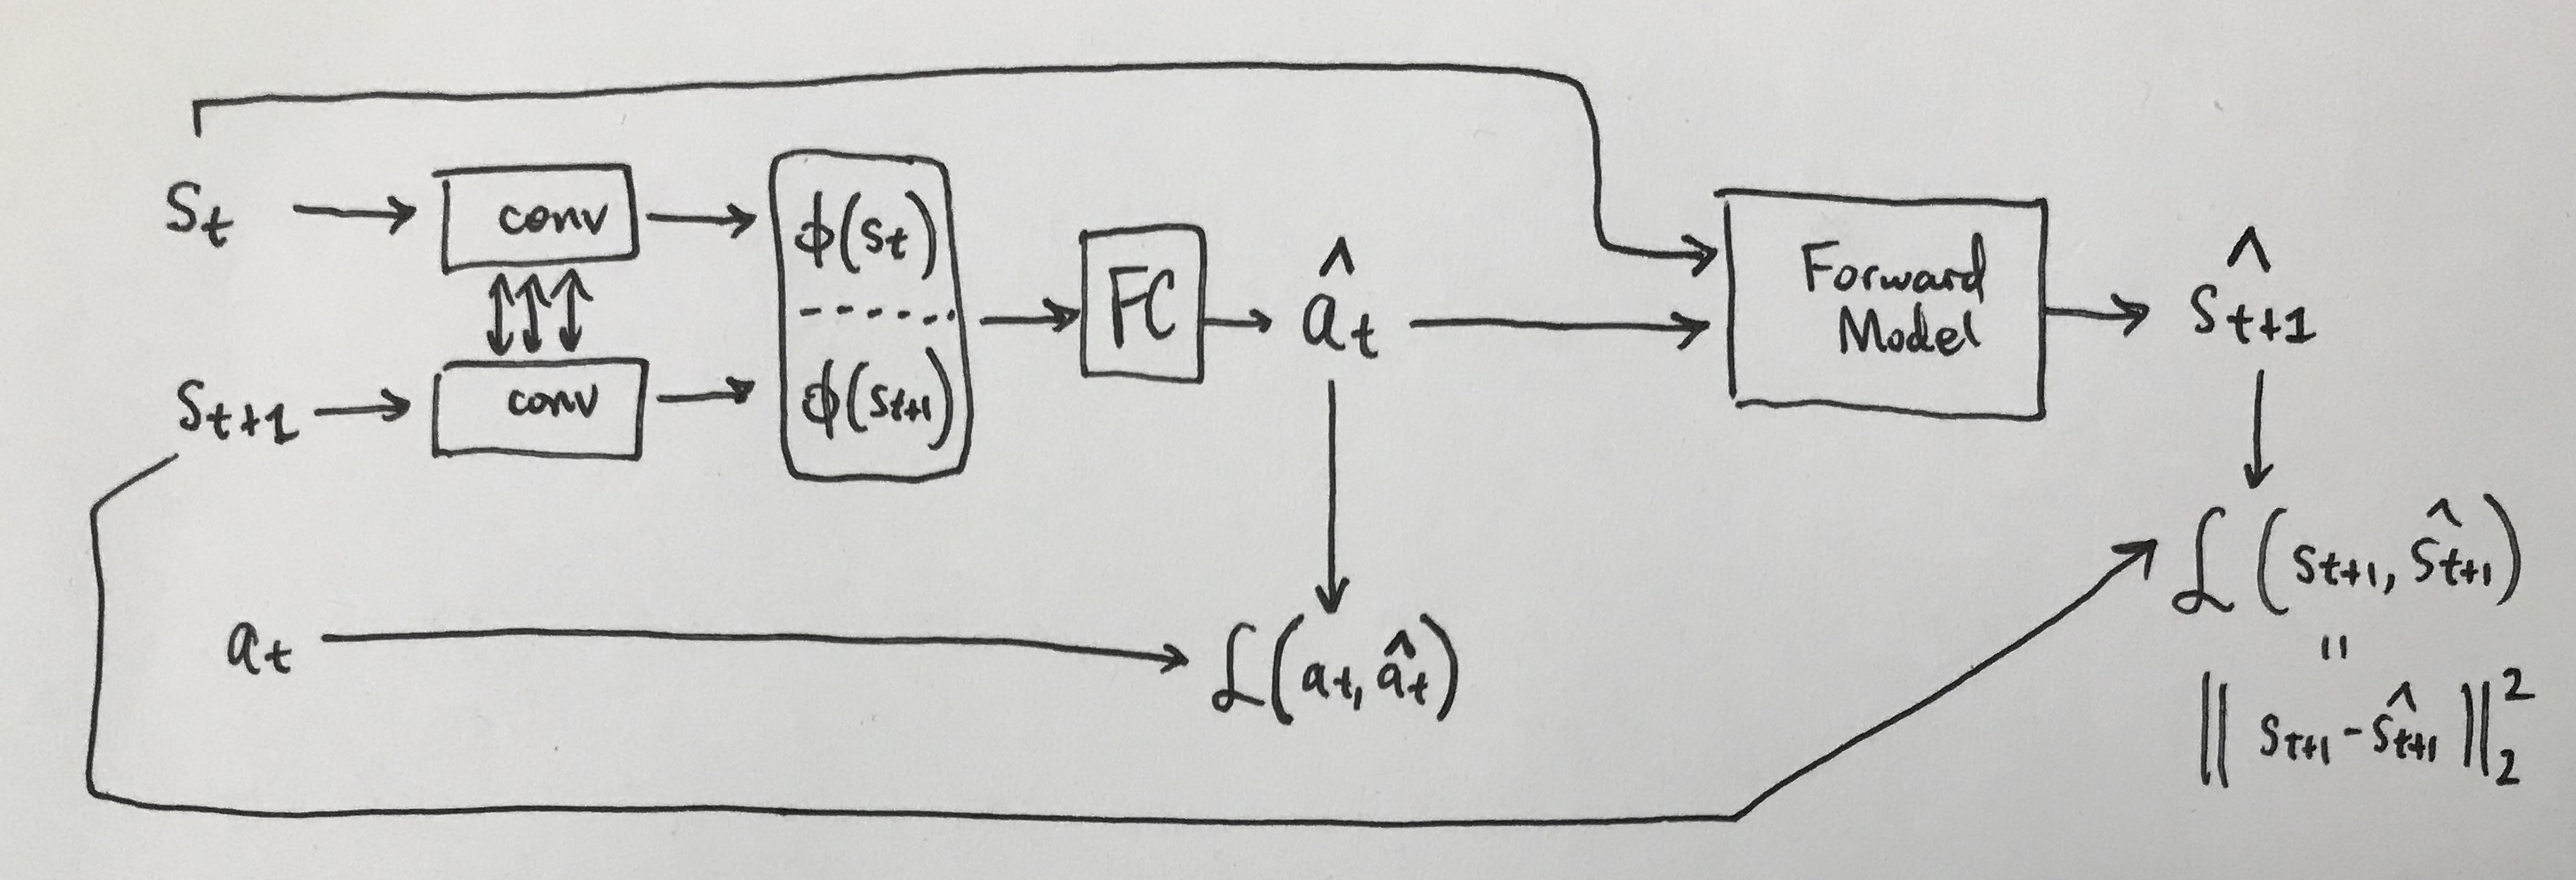 s_t
conv
ϕ(s_t)
s_{t+1}
conv
ϕ(s_{t+1})
FC
â_t
Forward
Model
ŝ_{t+1}
a_t
ℒ(a_t, â_t)
ℒ(s_{t+1}, ŝ_{t+1})
=
‖s_{t+1} - ŝ_{t+1}‖_2^2